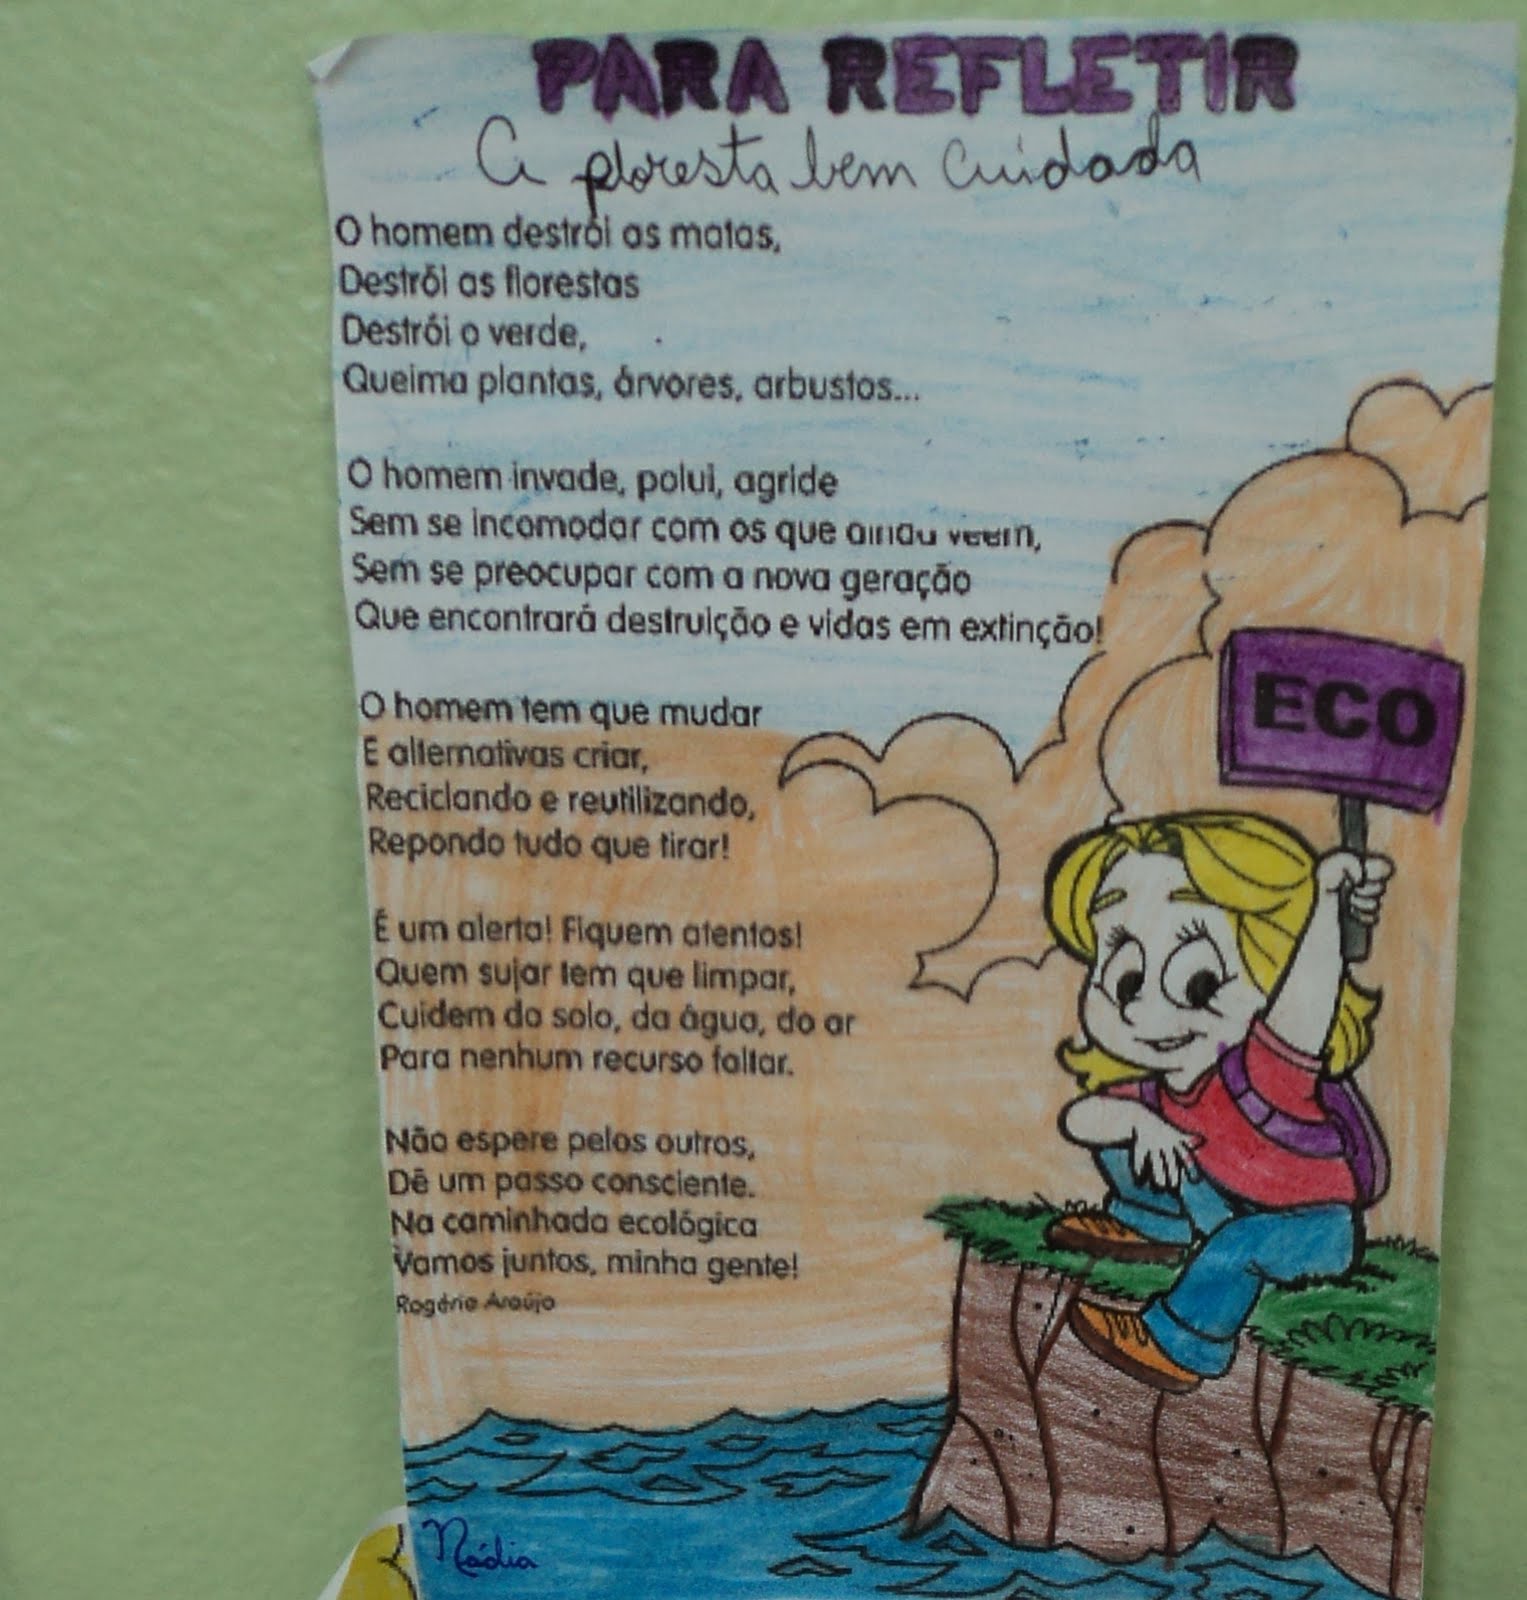 PARA REFLETIR
A floresta bem cuidada
O homem destrói as matas,
Destrói as florestas
Destrói o verde,
Queima plantas, árvores, arbustos...
O homem invade, polui, agride
Sem se incomodar com os que ainda veem,
Sem se preocupar com a nova geração
Que encontrará destruição e vidas em extinção!
O homem tem que mudar
E alternativas criar,
Reciclando e reutilizando,
Repondo tudo que tirar!
É um alerta! Fiquem atentos!
Quem sujar tem que limpar,
Cuidem do solo, da água, do ar
Para nenhum recurso faltar.
Não espere pelos outros,
Dê um passo consciente.
Na caminhada ecológica
Vamos juntos, minha gente!
Rogério Araújo
ECO
Nádia